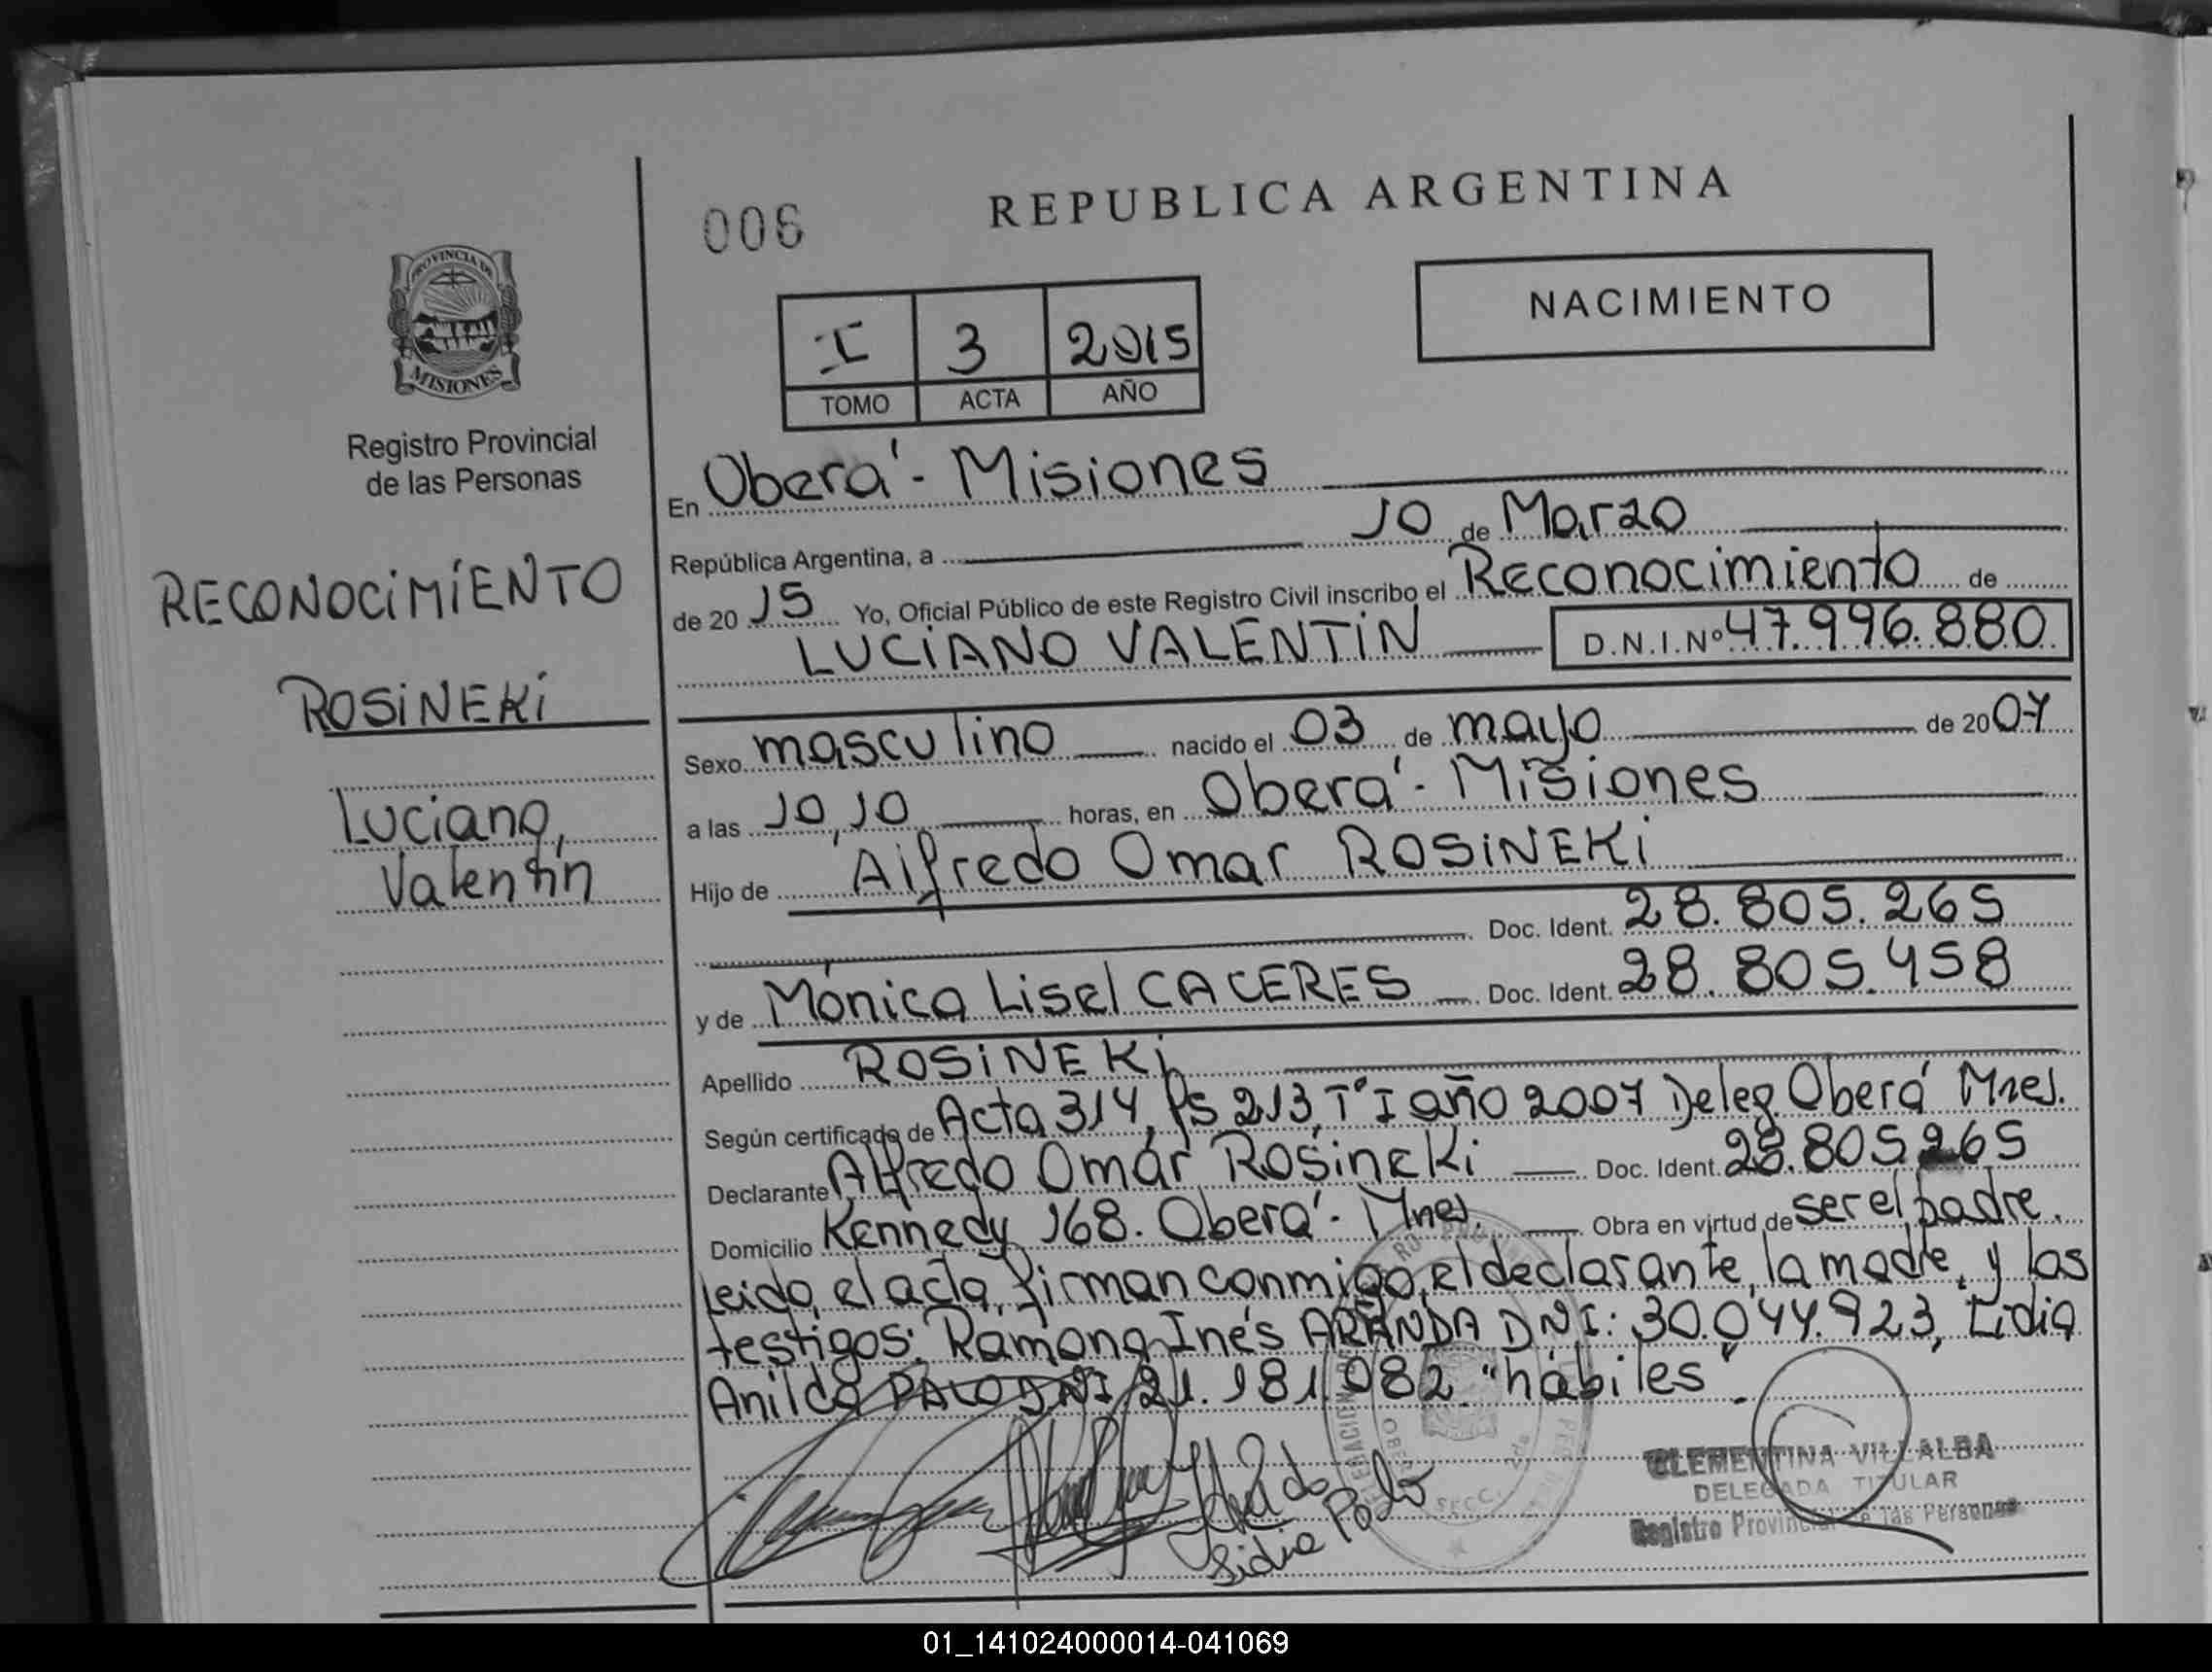 006
REPUBLICA ARGENTINA
PROVINCIA DE
MISIONES
Registro Provincial
de las Personas
I 3 2015
TOMO ACTA AÑO
NACIMIENTO
RECONOCIMIENTO
ROSINEKI
Luciano,
Valentín
En Oberá - Misiones
República Argentina, a 10 de Marzo
de 20 15 Yo, Oficial Público de este Registro Civil inscribo el Reconocimiento de
LUCIANO VALENTIN D.N.I.Nº 47.996.880
Sexo masculino nacido el 03 de mayo de 20 07
a las 10,10 horas, en Oberá - Misiones
Hijo de Alfredo Omar ROSINEKI
Doc. Ident. 28.805.265
y de Mónica Lisel CACERES Doc. Ident. 28.805.458
Apellido ROSINEKI
Según certificado de Acta 314, Fs 213, Tº I año 2007 Deleg Oberá Mnes.
Declarante Alfredo Omar Rosineki Doc. Ident. 28.805.265
Domicilio Kennedy 168. Oberá - Mnes. Obra en virtud de ser el padre.
Leida el acta, firman conmigo, el declarante, la madre, y los
testigos: Ramona Inés ARANDA DNI: 30.044.923, Lidia
Anilda PALO DNI 21.181.082 "hábiles".
Lidia Palo
CLEMENTINA VILLALBA
DELEGADA TITULAR
Registro Provincial de las Personas
01_141024000014-041069